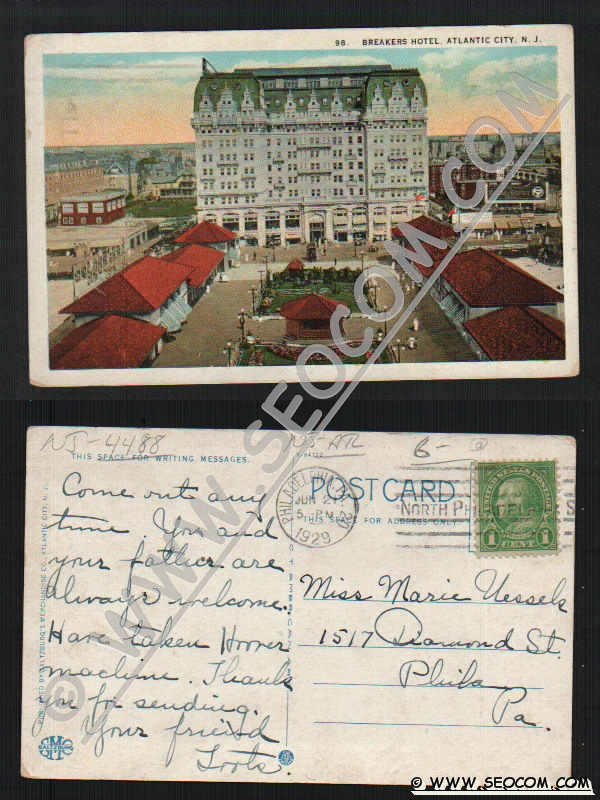 98. BREAKERS HOTEL, ATLANTIC CITY, N. J.
© WWW.SEOCOM.COM
NJ-4488
NJ-ATL
B-
THIS SPACE FOR WRITING MESSAGES.
POST CARD
THIS SPACE FOR ADDRESS ONLY
PHILADELPHIA
JUN 2
5-PM
1929
NORTH PHILADELPHIA S
UNITED STATES POSTAGE
1 CENT 1
Come out any
time. You and
your father are
always welcome.
Have taken Hoover
machine. Thank
you for sending.
Your friend
Toots.
Miss Marie Uessels
1517 Diamond St.
Phila
Pa.
SMC
SALTZBURG
© WWW.SEOCOM.COM